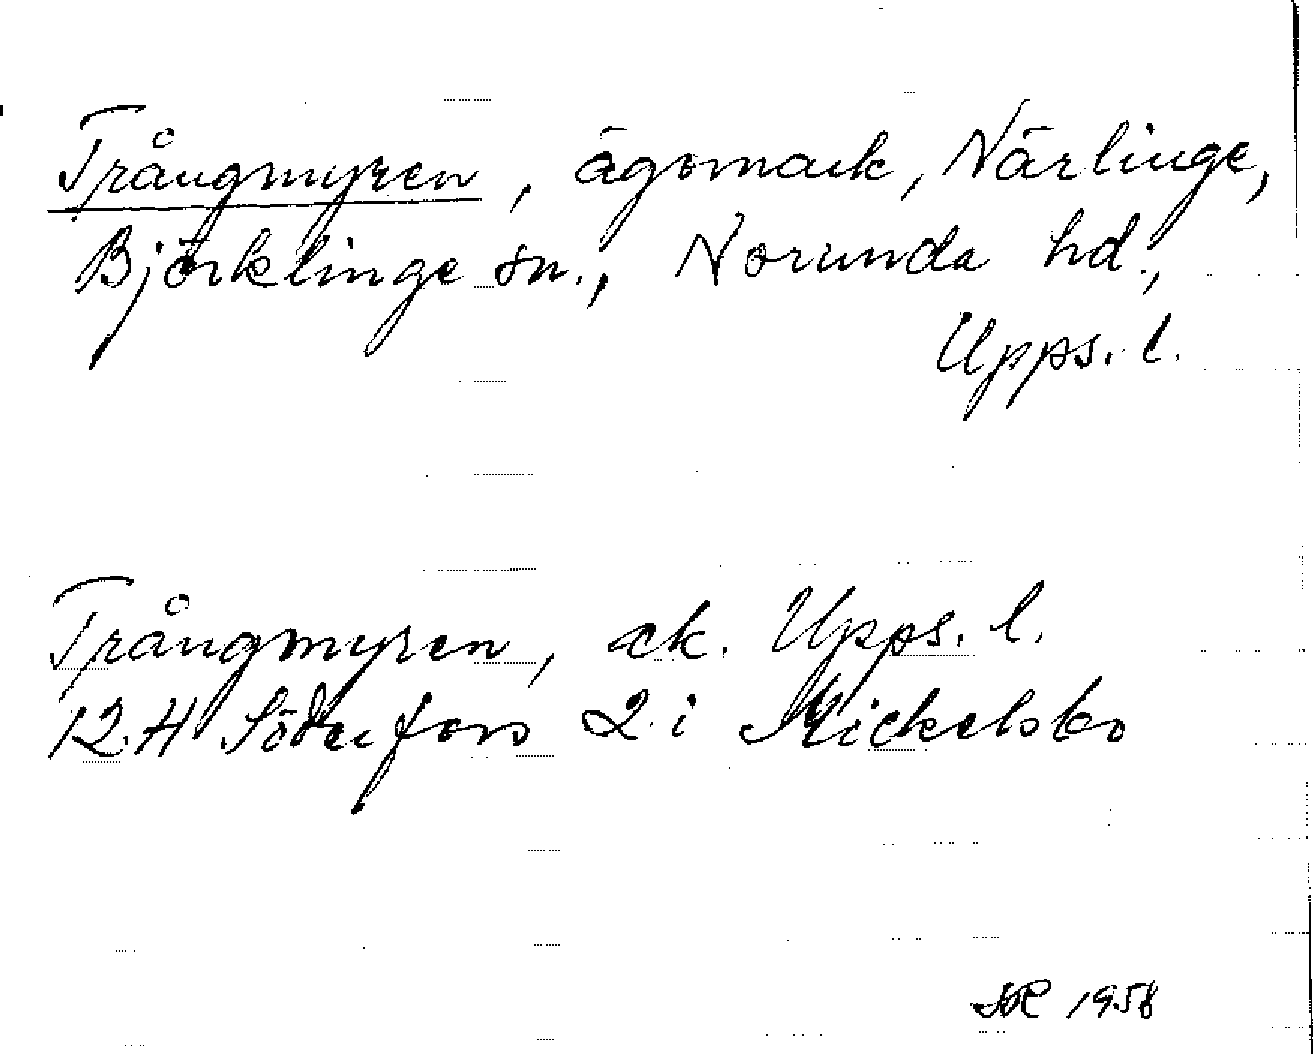 Trångmyren, ägomark, Närlinge,
Björklinge sn., Norunda hd.,
Upps. l.
Trångmyren, ek. Upps. l.
12.H Söderfors 2 i Mickelsbo
1958